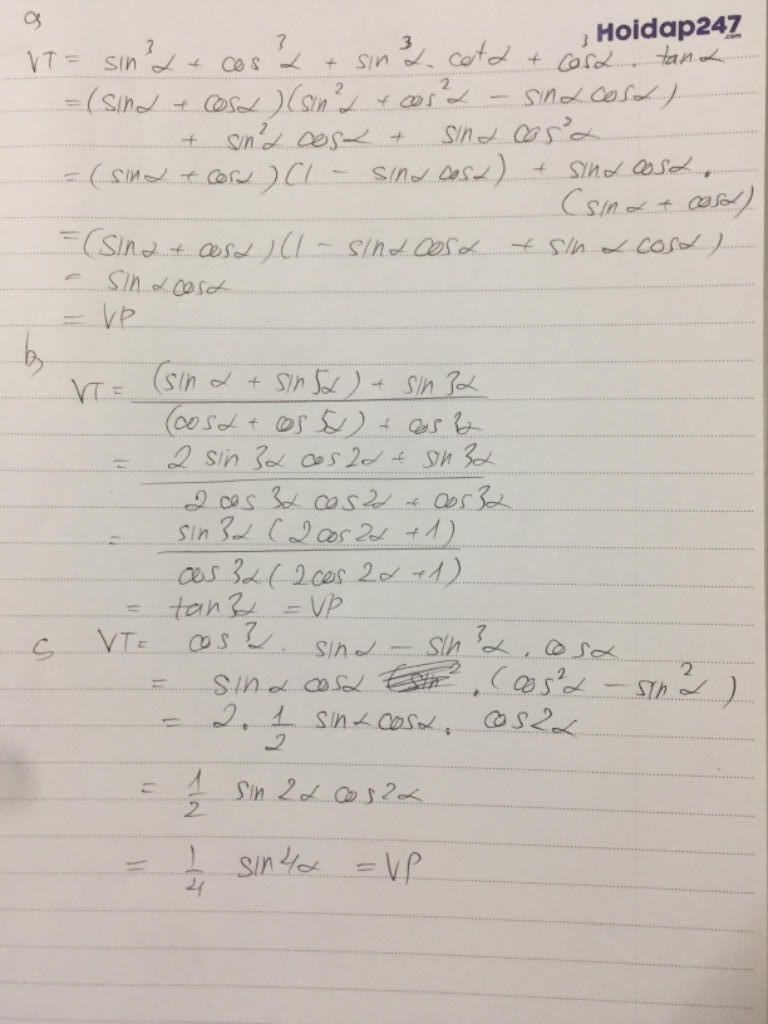 a,
Hoidap247.com
VT = sin³α + cos³α + sin³α. cotα + cos³α. tanα
= (sinα + cosα)(sin²α + cos²α - sinα cosα)
+ sin²α cosα + sinα cos²α
= (sinα + cosα)(1 - sinα cosα) + sinα cosα.
(sinα + cosα)
= (sinα + cosα)(1 - sinα cosα + sin α cosα)
= sin α cosα
= VP
b,
VT = (sin α + sin5α) + sin 3α
(cosα + cos 5α) + cos 3α
= 2 sin 3α cos2α + sin 3α
2 cos 3α cos2α + cos3α
= sin3α (2cos2α + 1)
cos 3α (2cos 2α + 1)
= tan3α = VP
c, VT = cos³α. sinα - sin³α. cosα
= sinα cosα .(cos²α - sin²α)
= 2. 1/2 sinα cosα. cos2α
= 1/2 sin 2α cos2α
= 1/4 sin4α = VP